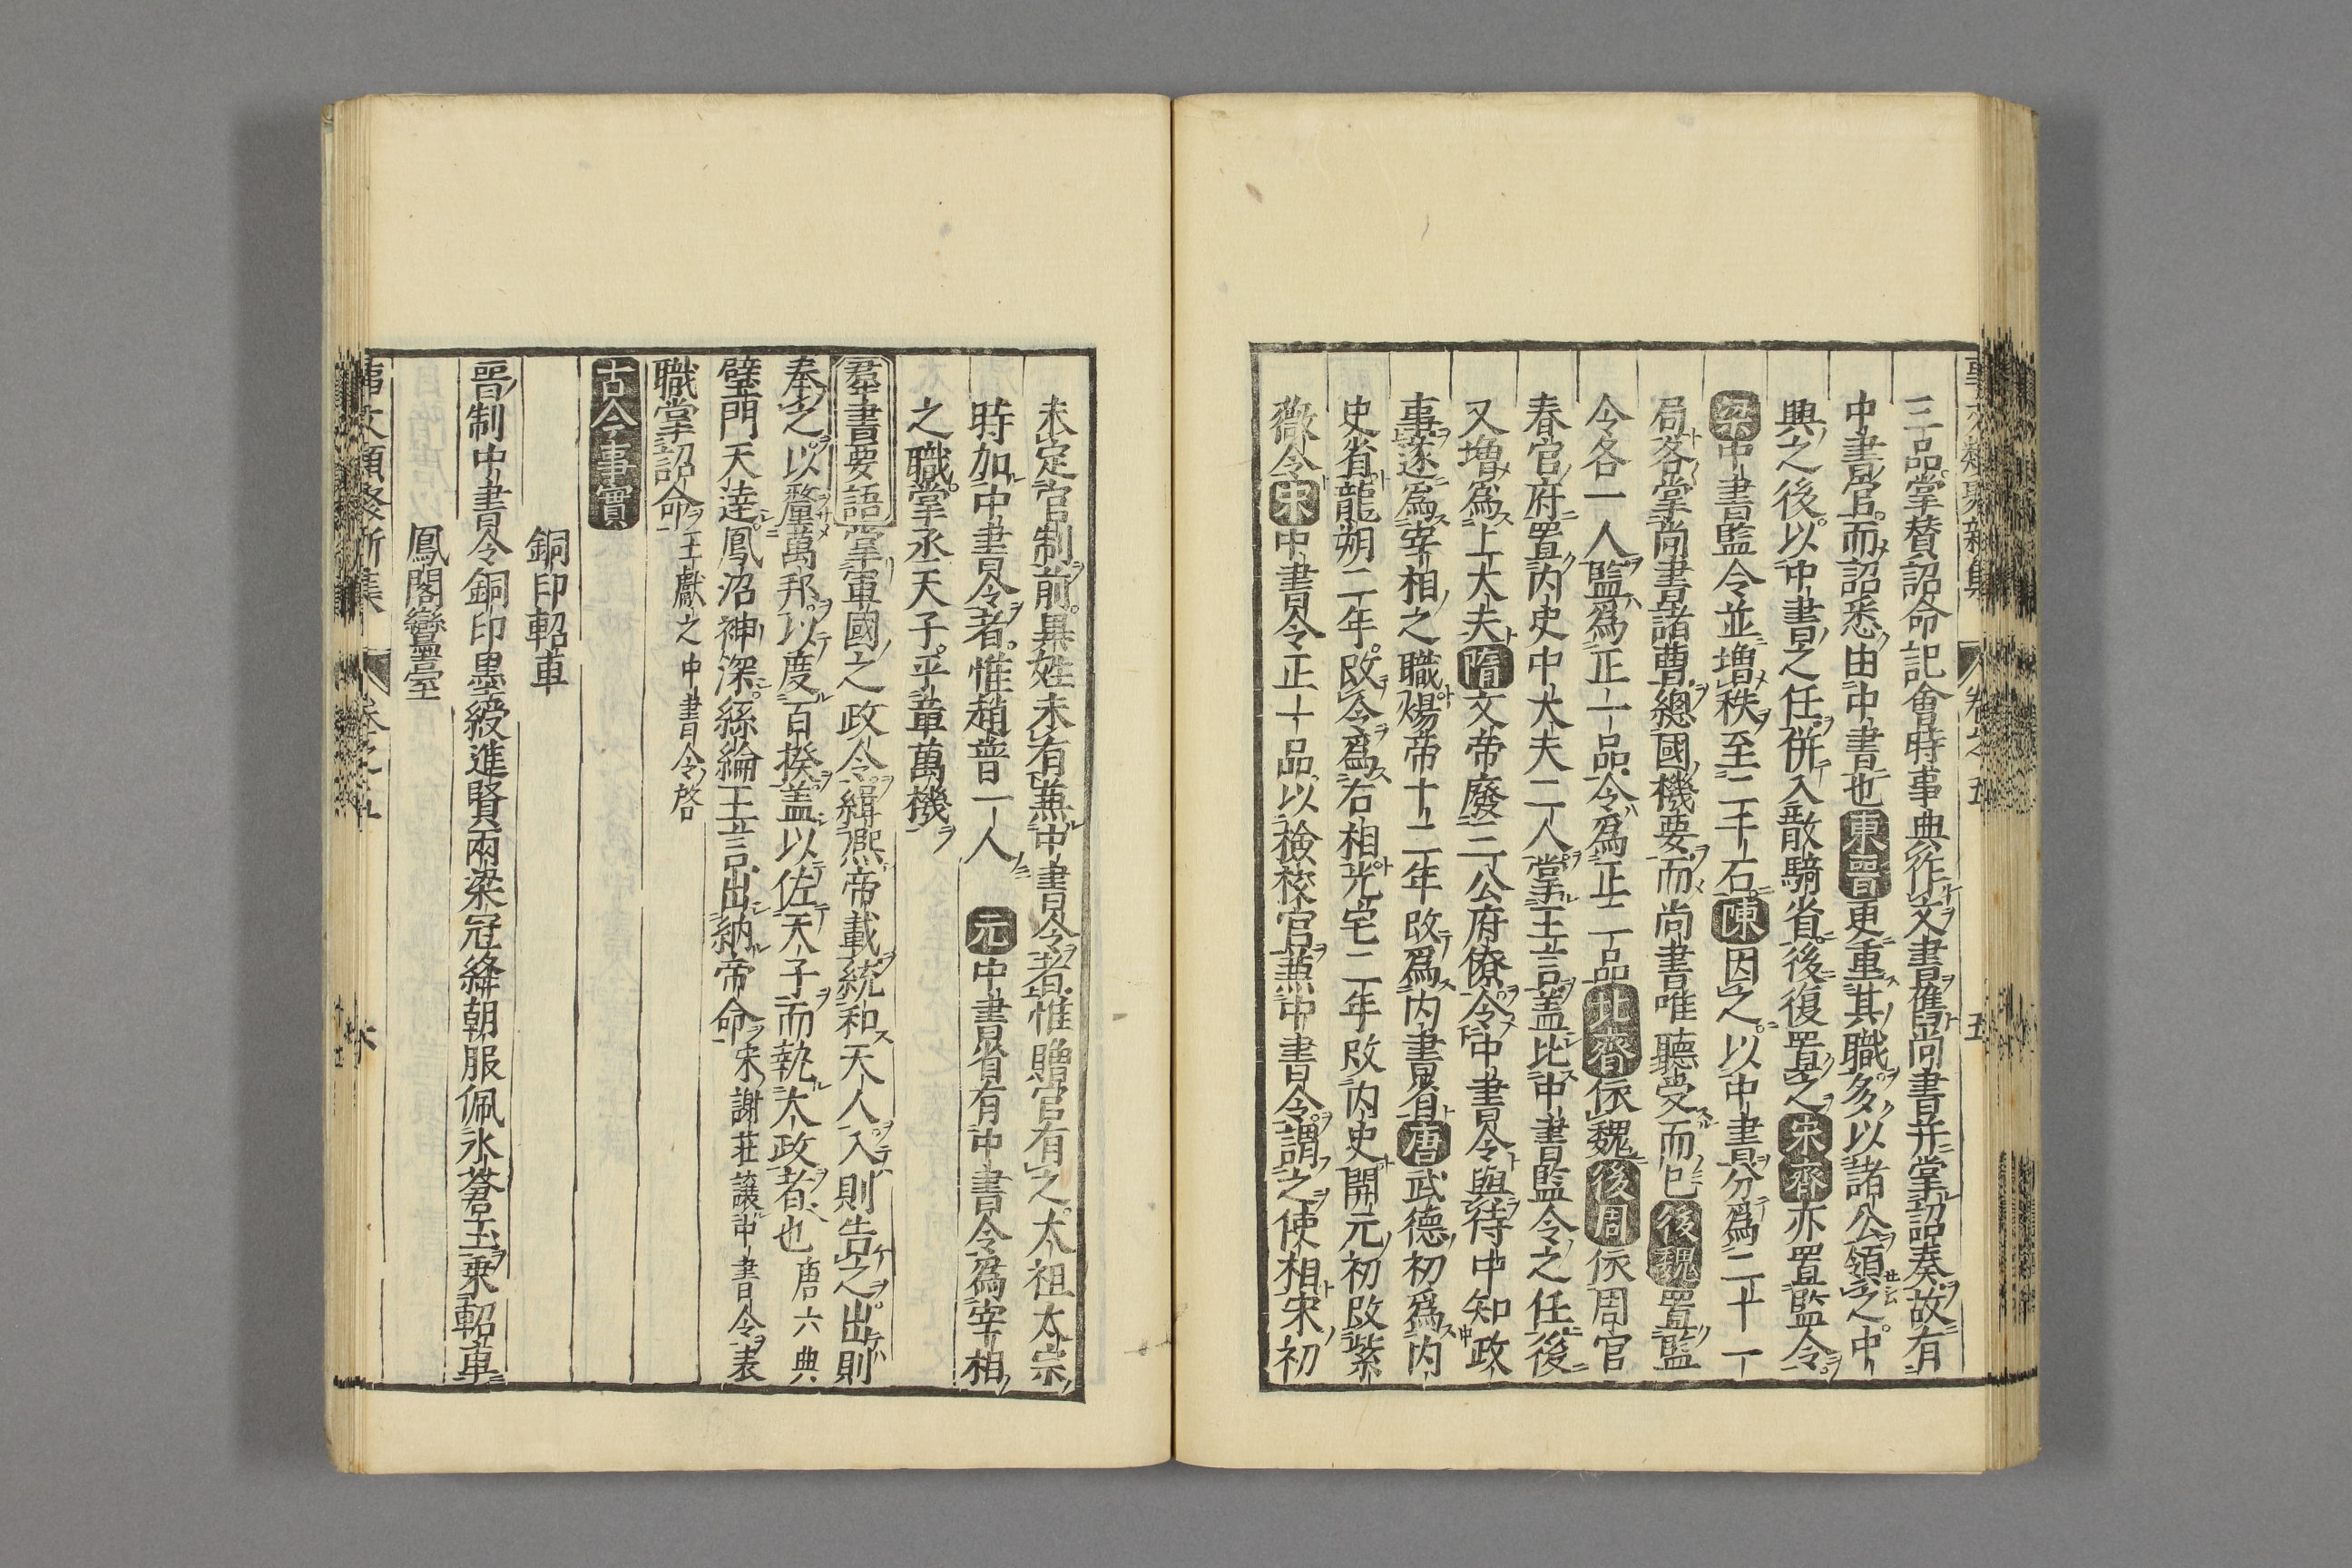 事文類聚新集 卷之五 五
三品掌賛詔命記會時事典作文書舊尚書并掌詔奏故有
中書官而詔悉由中書也東晋更重其職多以諸公領之中
興之後以中書之任併入散騎省後復置之宋齊亦置監令
梁中書監令並増秩至二千石陳因之以中書分為二十一
局各掌尚書諸曹總國機要而尚書唯聽受而已後魏置監
令各一人監為正一品令為正二品北齊依魏後周依周官
春官府置内史中大夫二人掌王言盖比中書監令之任後
又増為上大夫隋文帝廢三公府僚令中書令與侍中知政
事遂為宰相之職煬帝十二年改為内書省唐武德初為内
史省龍朔二年改令為右相光宅二年改内史開元初改紫
微令宋中書令正一品以檢校官蕪中書令謂之使相宋初
未定官制前異姓未有蕪中書令者惟贈官有之太祖太宗
時加中書令者惟趙普一人 元中書省有中書令為宰相
之職掌丞天子平章萬機
羣書要語掌軍國之政令緝熈帝載統和天人入則告之出則
奉之以釐萬邦以度百揆盖以佐天子而執大政者也唐六典
璧門天逹鳳沼神深絲綸王言出納帝命宋謝莊讓中書令表
職掌詔命王獻之中書令啓
古今事實
銅印軺車
晋制中書令銅印墨綬進賢兩梁冠絳朝服佩水蒼玉乘軺車
鳳閣鸞臺
事文類聚新集 卷之五 六